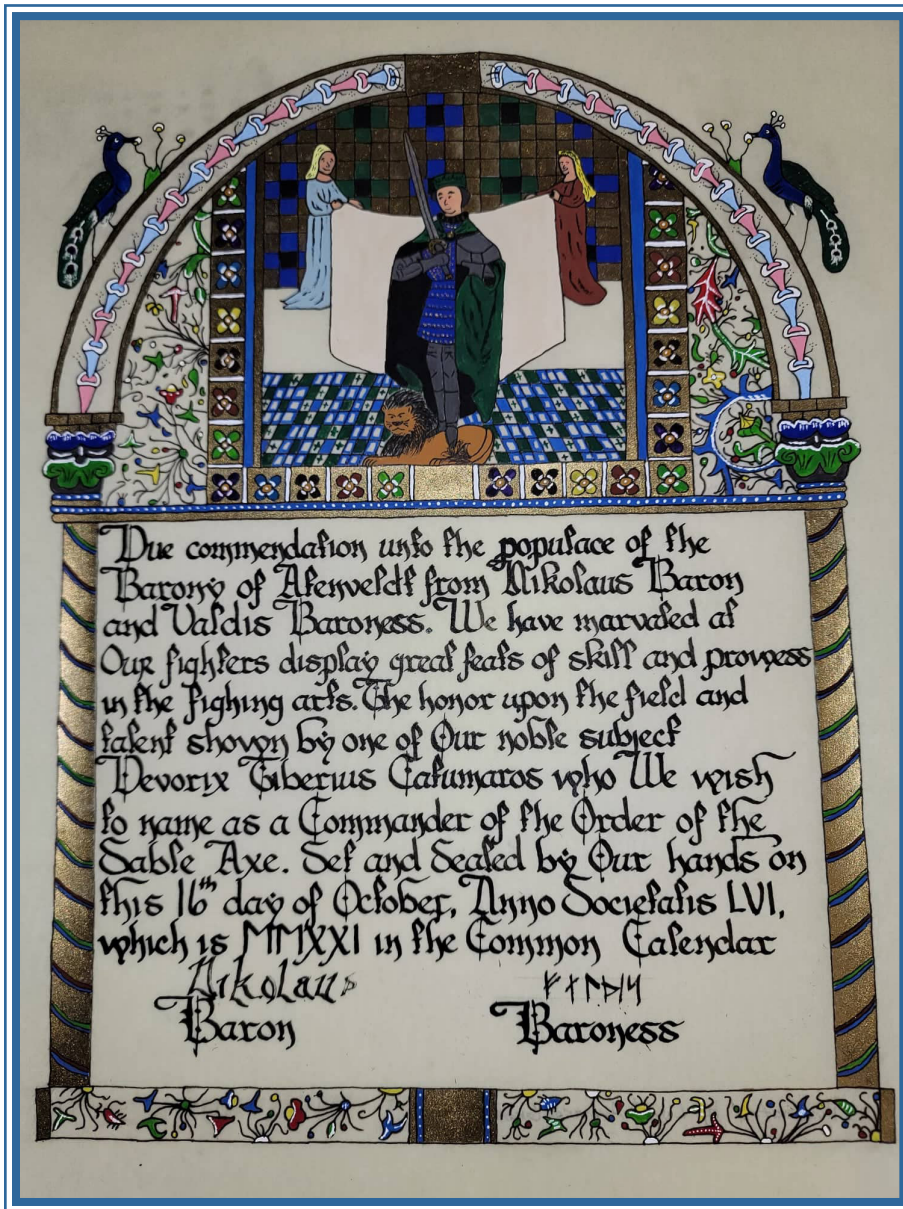 Due commendation unto the populace of the
Barony of Atenveldt from Nikolaus Baron
and Valdis Baroness. We have marvaled at
Our fighters display great feats of skill and prowess
in the fighing arts. The honor upon the field and
talent shown by one of Our noble subject
Devorix Tiberius Catumaros who We wish
to name as a Commander of the Order of the
Sable Axe. Set and Sealed by Our hands on
this 16th day of October, Anno Societatis LVI,
which is MMXXI in the Common Calendar
Nikolaus ᚠᛅᛚᚦᛁᛋ
Baron Baroness